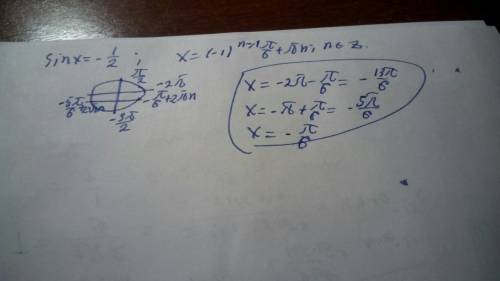 sin x = - 1/2 ; x = (-1)^(n-1) π/6 + πn; n ∈ z.
π/2
-2π
-5π/6 + 2πn
-π/6 + 2πn
-3π/2
x = -2π - π/6 = - 13π/6
x = -π + π/6 = - 5π/6
x = - π/6